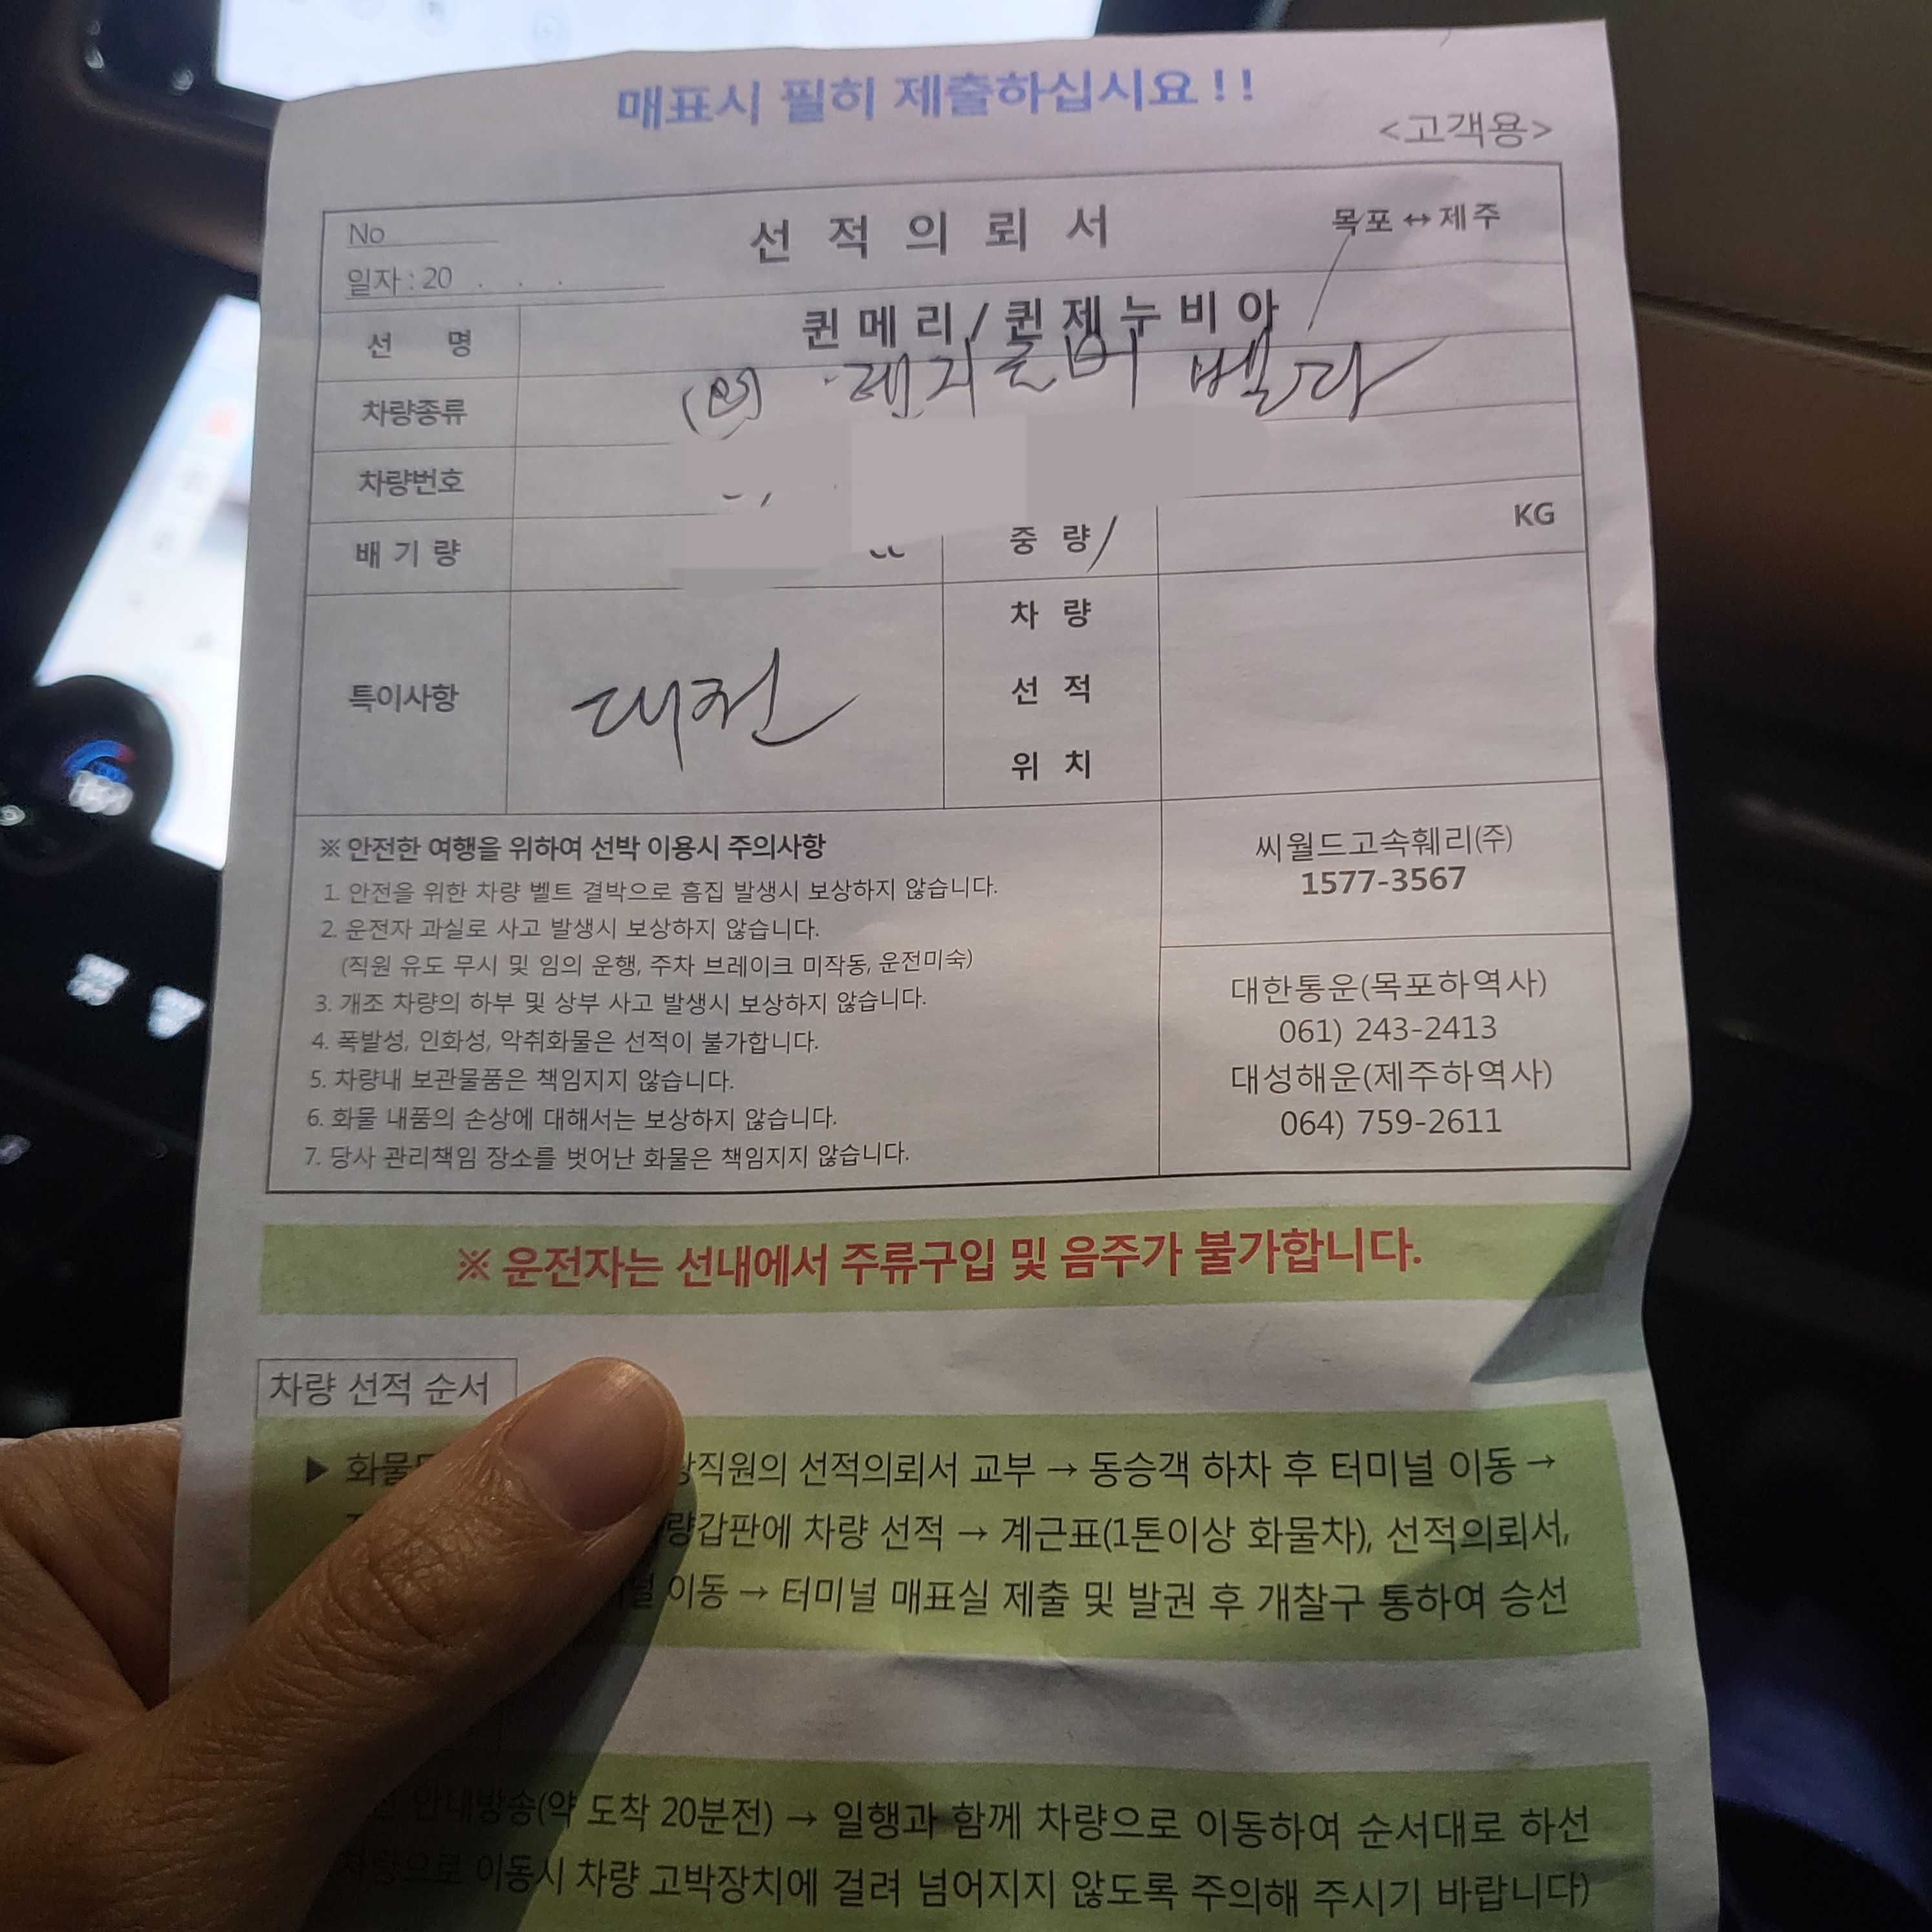 매표시 필히 제출하십시요!!
<고객용>
No
선적의뢰서
목포↔제주
일자 : 20 . . .
선 명
퀸메리/퀸제누비아
차량종류
벨라
차량번호
배기량
cc
중 량
KG
특이사항
대전
차 량
선 적
위 치
※ 안전한 여행을 위하여 선박 이용시 주의사항
1. 안전을 위한 차량 벨트 결박으로 흠집 발생시 보상하지 않습니다.
2. 운전자 과실로 사고 발생시 보상하지 않습니다.
(직원 유도 무시 및 임의 운행, 주차 브레이크 미작동, 운전미숙)
3. 개조 차량의 하부 및 상부 사고 발생시 보상하지 않습니다.
4. 폭발성, 인화성, 악취화물은 선적이 불가합니다.
5. 차량내 보관물품은 책임지지 않습니다.
6. 화물 내품의 손상에 대해서는 보상하지 않습니다.
7. 당사 관리책임 장소를 벗어난 화물은 책임지지 않습니다.
씨월드고속훼리(주)
1577-3567
대한통운(목포하역사)
061) 243-2413
대성해운(제주하역사)
064) 759-2611
※ 운전자는 선내에서 주류구입 및 음주가 불가합니다.
차량 선적 순서
▶ 선적의뢰서 교부 → 동승객 하차 후 터미널 이동 →
차량 선적 → 계근표(1톤이상 화물차), 선적의뢰서,
이동 → 터미널 매표실 제출 및 발권 후 개찰구 통하여 승선
안내방송(약 도착 20분전) → 일행과 함께 차량으로 이동하여 순서대로 하선
차량으로 이동시 차량 고박장치에 걸려 넘어지지 않도록 주의해 주시기 바랍니다)